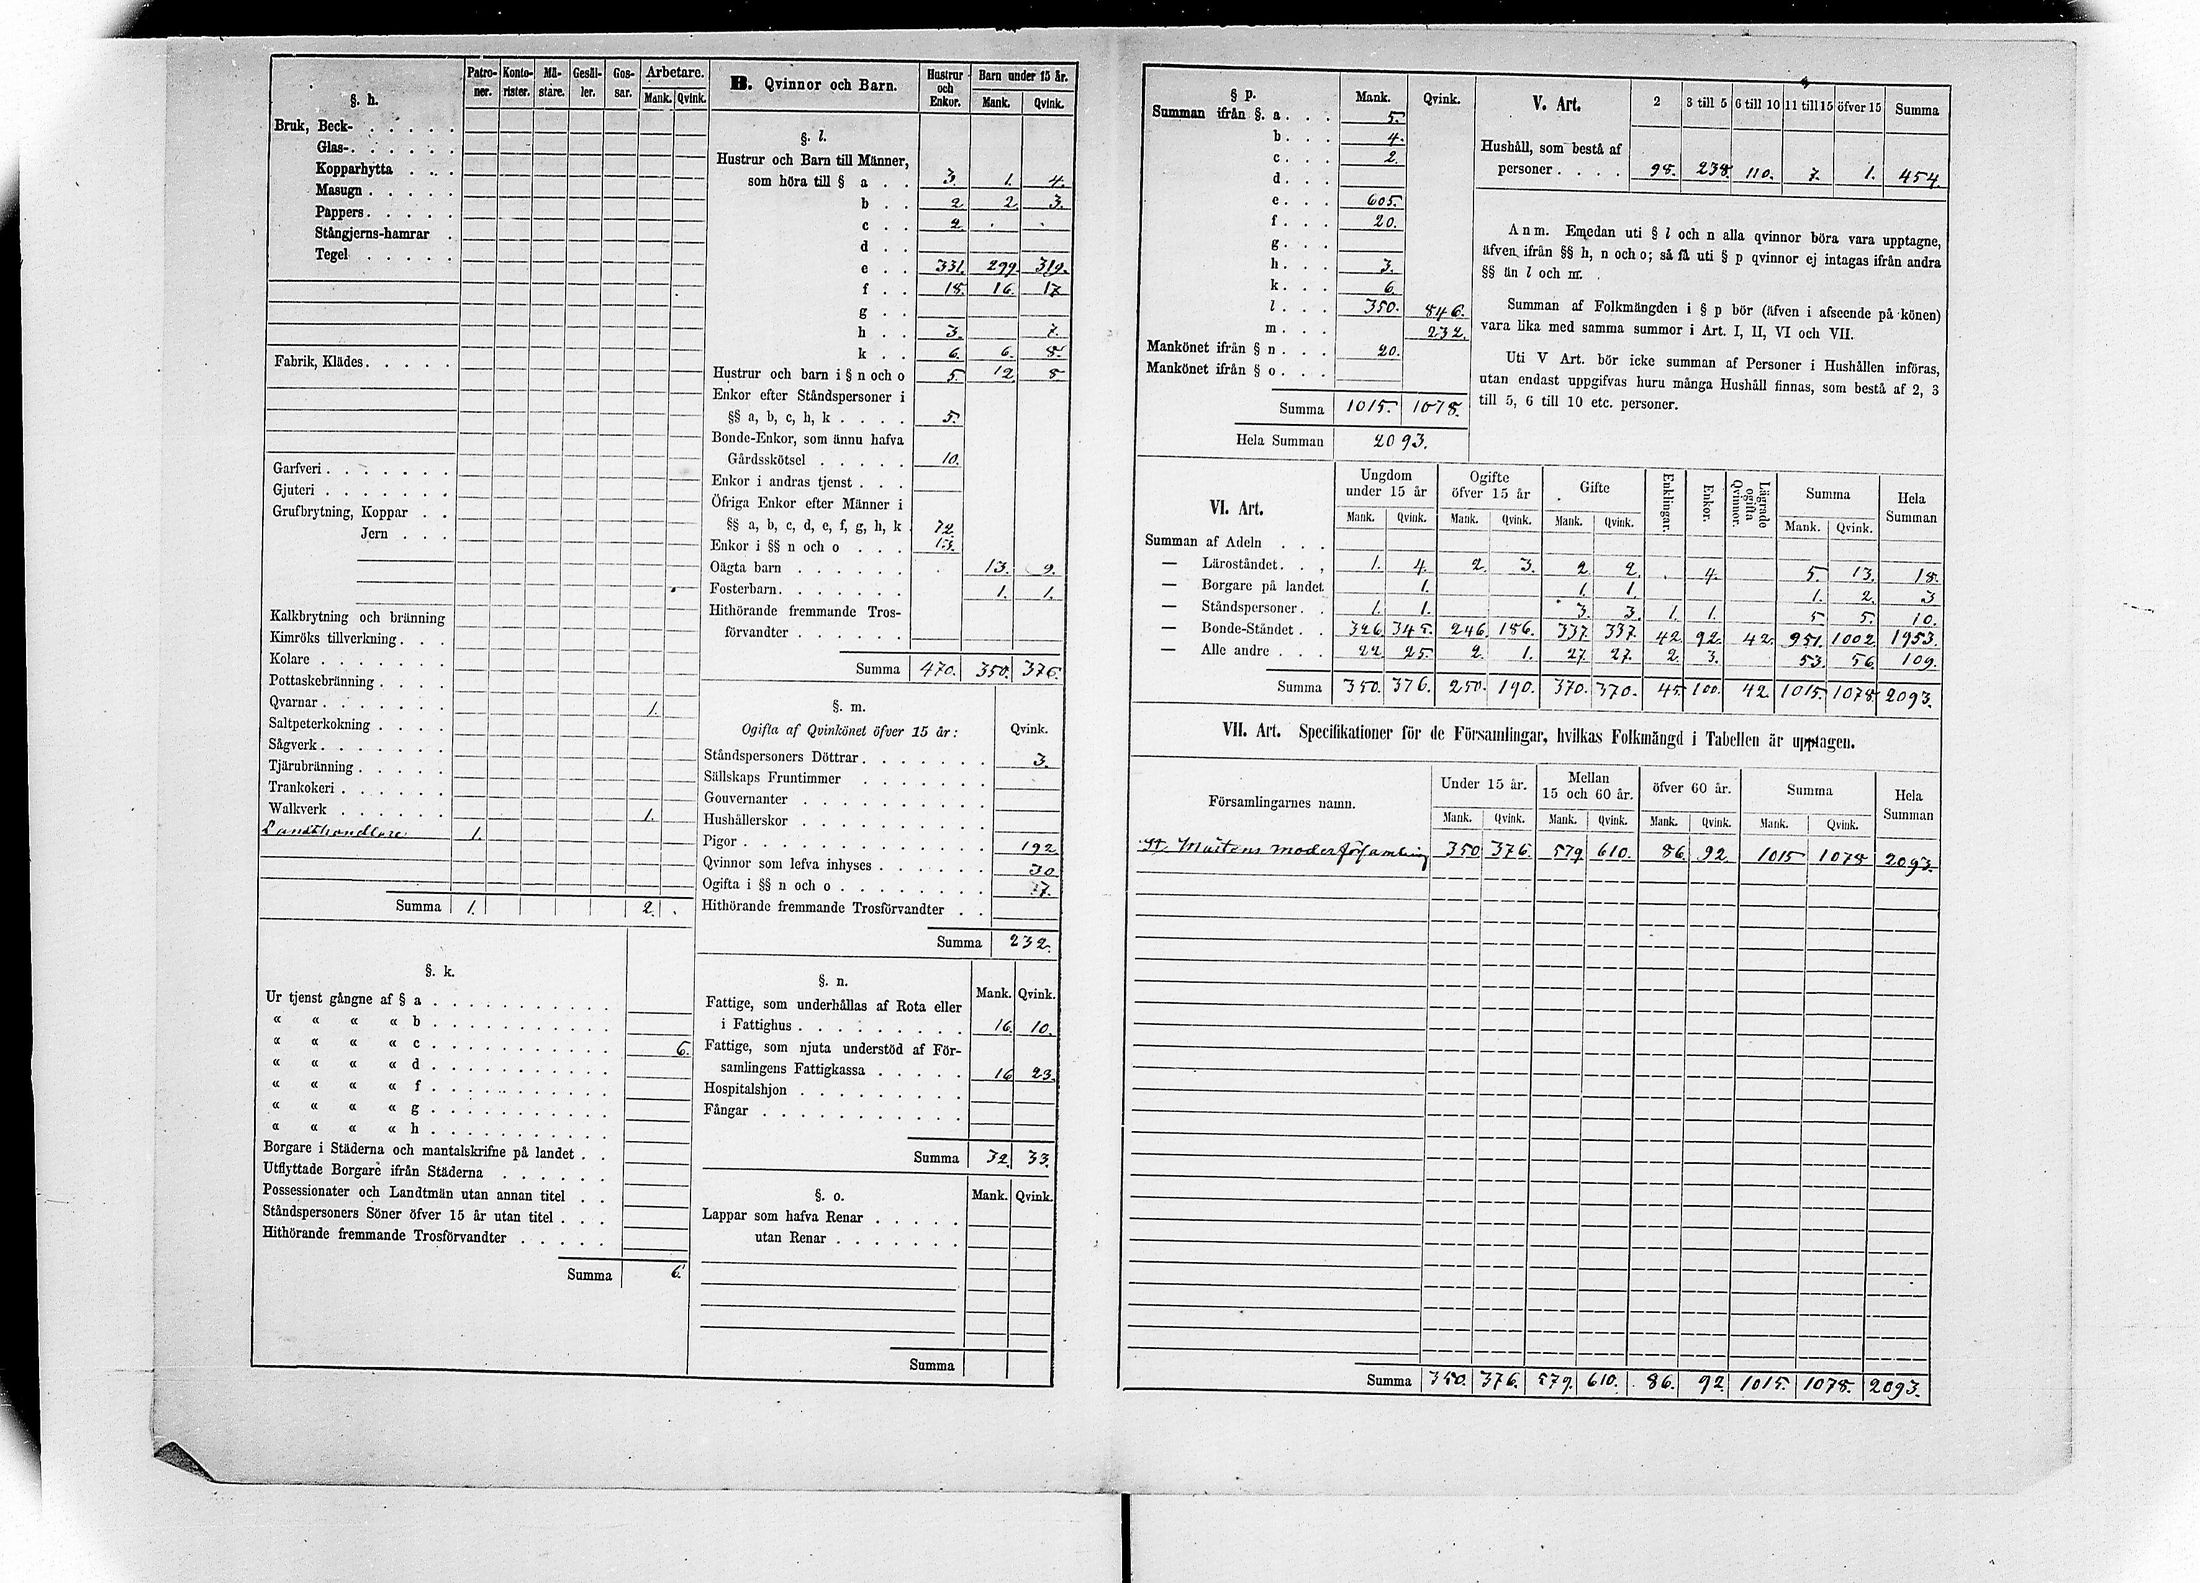 §. h.
Patro-ner. Konto-rister. Mä-stare. Gesäl-ler. Gos-sar. Arbetare. Mank. Qvink.
Bruk, Beck-
Glas-
Kopparhytta
Masugn
Pappers
Stångjerns-hamrar
Tegel
Fabrik, Klädes
Garfveri
Gjuteri
Grufbrytning, Koppar
Jern
Kalkbrytning och bränning
Kimröks tillverkning
Kolare
Pottaskebränning
Qvarnar 1.
Saltpeterkokning
Sågverk
Tjärubränning
Trankokeri
Walkverk 1.
Landthandlare 1.
Summa 1. 2.
§. k.
Ur tjenst gångne af § a
« « « « b
« « « « c 6.
« « « « d
« « « « f
« « « « g
« « « « h
Borgare i Städerna och mantalskrifne på landet
Utflyttade Borgare ifrån Städerna
Possessionater och Landtmän utan annan titel
Ståndspersoners Söner öfver 15 år utan titel
Hithörande fremmande Trosförvandter
Summa 6.
B. Qvinnor och Barn.
Hustrur och Enkor. Barn under 15 år. Mank. Qvink.
§. l.
Hustrur och Barn till Männer,
som höra till § a 3. 1. 4.
b 2 2 3.
c 2
d
e 331. 299. 319.
f 18. 16. 17
g
h 3. 7.
k 6. 6. 8.
Hustrur och barn i § n och o 5. 12. 8
Enkor efter Ståndspersoner i
§§ a, b, c, h, k 5.
Bonde-Enkor, som ännu hafva
Gårdsskötsel 10.
Enkor i andras tjenst
Öfriga Enkor efter Männer i
§§ a, b, c, d, e, f, g, h, k 72.
Enkor i §§ n och o 13.
Oägta barn 13. 9.
Fosterbarn 1. 1.
Hithörande fremmande Tros-
förvandter
Summa 470. 350. 376.
§. m.
Ogifta af Qvinkönet öfver 15 år: Qvink.
Ståndspersoners Döttrar 3.
Sällskaps Fruntimmer
Gouvernanter
Hushållerskor
Pigor 192
Qvinnor som lefva inhyses 30
Ogifta i §§ n och o 7.
Hithörande fremmande Trosförvandter
Summa 232.
§. n. Mank. Qvink.
Fattige, som underhållas af Rota eller
i Fattighus 16. 10.
Fattige, som njuta understöd af För-
samlingens Fattigkassa 16 23.
Hospitalshjon
Fångar
Summa 32. 33.
§. o. Mank. Qvink.
Lappar som hafva Renar
utan Renar
Summa
§ p. Mank. Qvink.
Summan ifrån §. a 5.
b 4.
c 2.
d
e 605.
f 20.
g
h 3.
k 6.
l 350. 846.
m 232.
Mankönet ifrån § n 20.
Mankönet ifrån § o
Summa 1015. 1078.
Hela Summan 2093.
V. Art. 2 3 till 5 6 till 10 11 till 15 öfver 15 Summa
Hushåll, som bestå af
personer 98. 238. 110. 7. 1. 454.
Anm. Emedan uti § l och n alla qvinnor böra vara upptagne,
äfven ifrån §§ h, n och o; så få uti § p qvinnor ej intagas ifrån andra
§§ än l och m.
Summan af Folkmängden i § p bör (äfven i afseende på könen)
vara lika med samma summor i Art. I, II, VI och VII.
Uti V Art. bör icke summan af Personer i Hushållen införas,
utan endast uppgifvas huru många Hushåll finnas, som bestå af 2, 3
till 5, 6 till 10 etc. personer.
VI. Art.
Ungdom under 15 år Ogifte öfver 15 år Gifte Enklingar. Enkor. Lägrade ogifta Qvinnor. Summa Hela Summan
Mank. Qvink. Mank. Qvink. Mank. Qvink. Mank. Qvink.
Summan af Adeln
— Läroståndet 1. 4. 2. 3. 2 2. 4. 5. 13. 18.
— Borgare på landet 1. 1. 1. 1. 2. 3
— Ståndspersoner 1. 1. 3. 3. 1. 1. 5 5. 10.
— Bonde-Ståndet 326. 345. 246. 186. 337. 337. 42. 92. 42. 951. 1002. 1953.
— Alle andre 22. 25. 2. 1. 27. 27. 2. 3. 53. 56. 109.
Summa 350. 376. 250. 190. 370. 370. 45. 100. 42. 1015. 1078. 2093.
VII. Art. Specifikationer för de Församlingar, hvilkas Folkmängd i Tabellen är upptagen.
Församlingarnes namn. Under 15 år. Mellan 15 och 60 år. öfver 60 år. Summa Hela Summan
Mank. Qvink. Mank. Qvink. Mank. Qvink. Mank. Qvink.
St. Mårtens moderförsamling 350 376. 579. 610. 86. 92. 1015 1078 2093.
Summa 350. 376. 579. 610. 86. 92 1015. 1078. 2093.